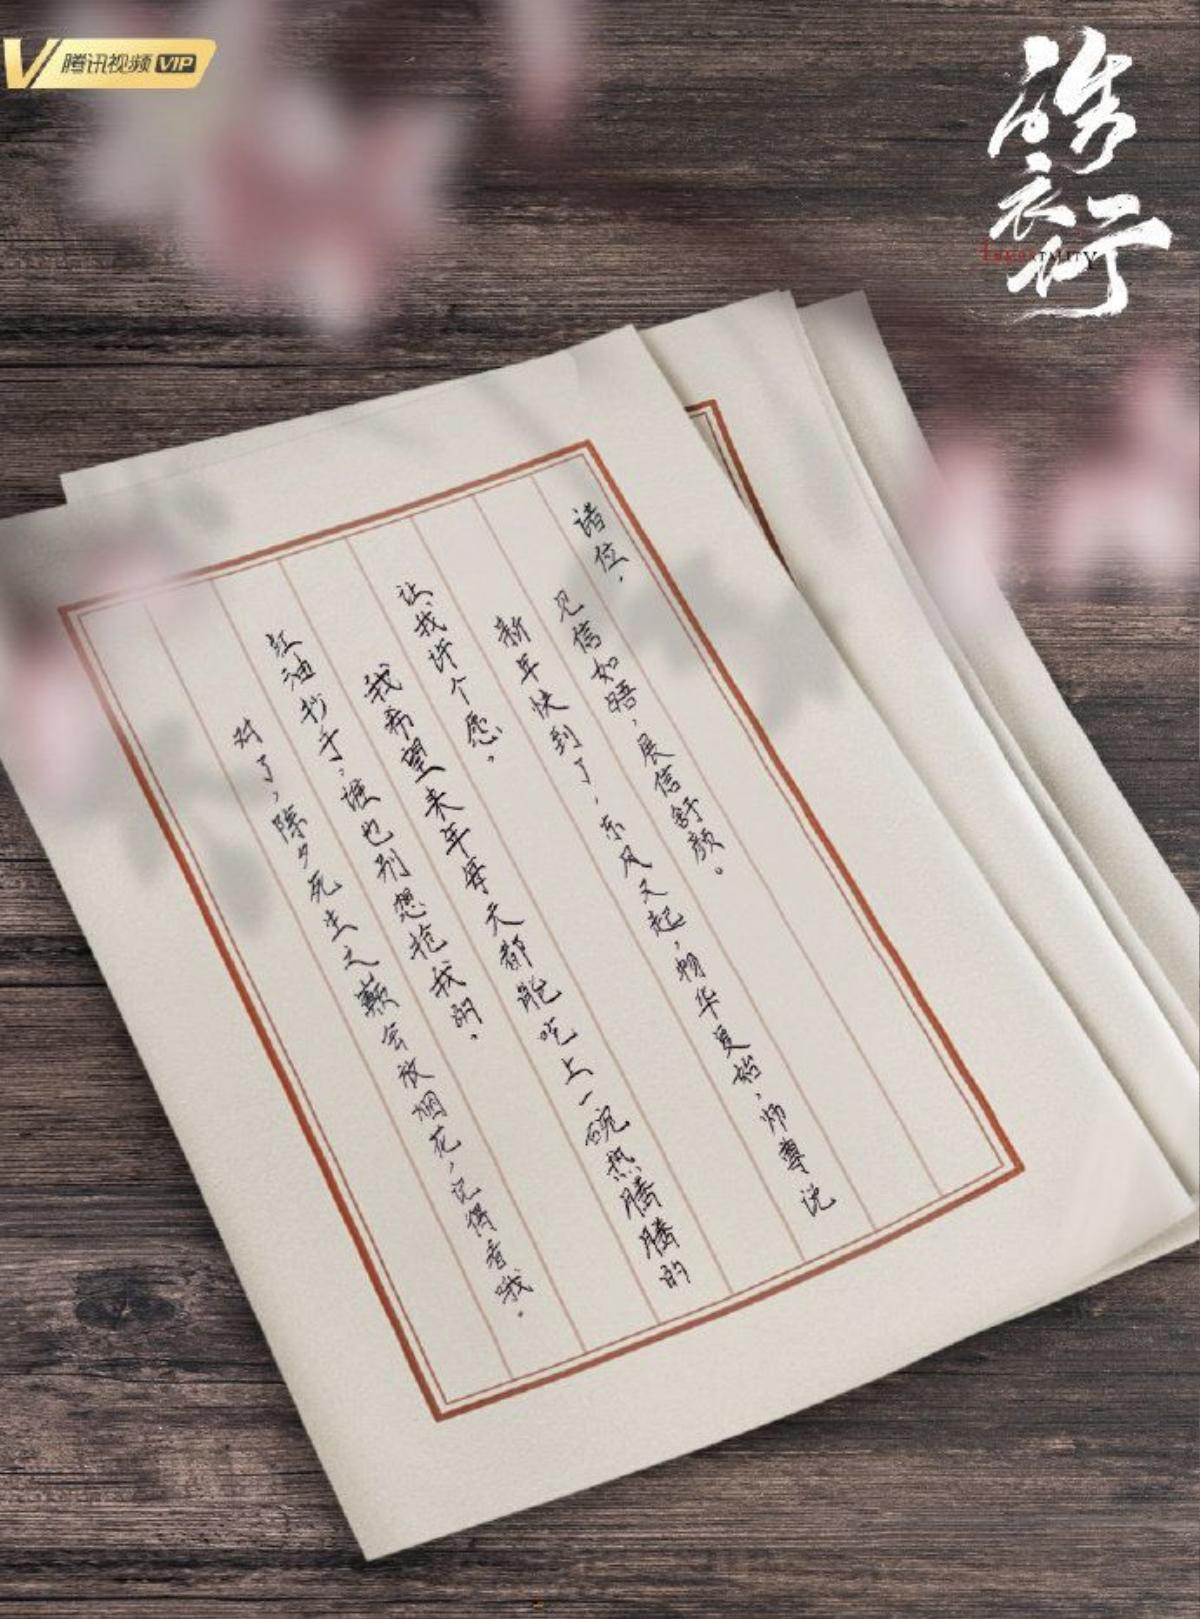 腾讯视频VIP
皓衣行
IMMORTALITY
诸位，
见信如晤，展信舒颜。
新年快到了，东风又起，物华更始，师尊说
让我许个愿。
我希望来年每天都能吃上一碗热腾腾的
红油抄手，谁也别想抢我的。
对了，除夕死生之巅会放烟花，记得看哦。